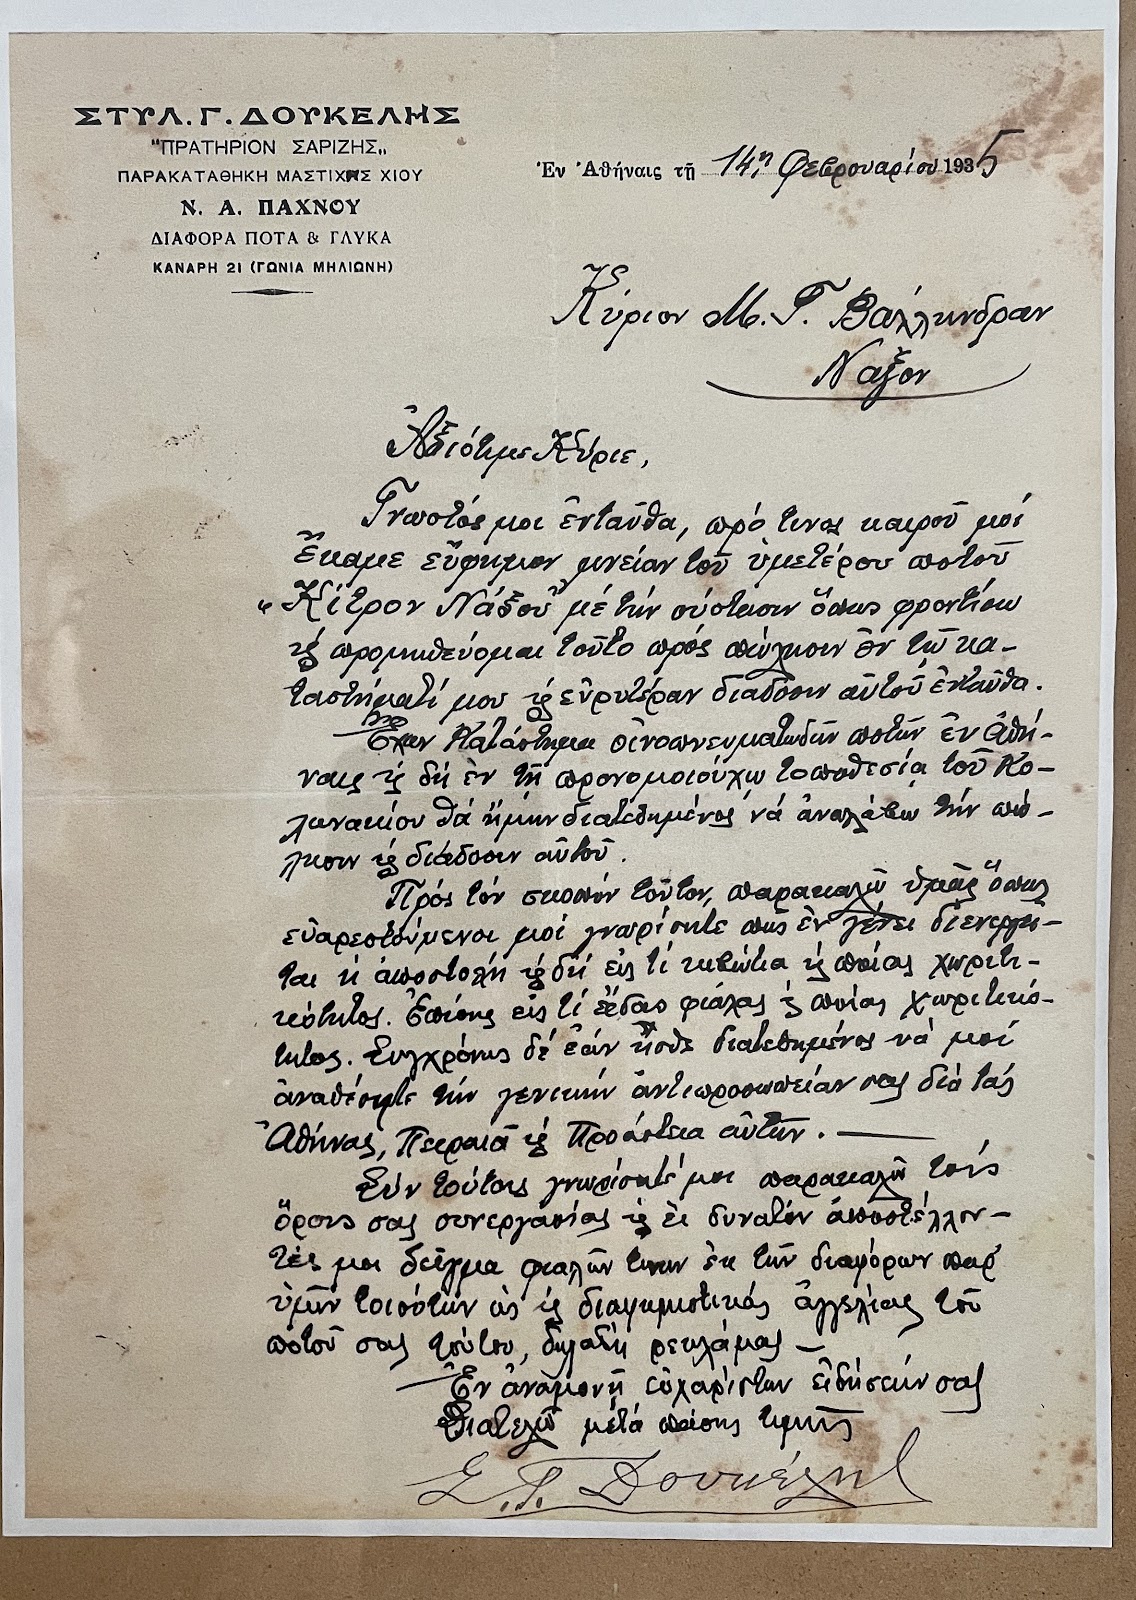 ΣΤΥΛ. Γ. ΔΟΥΚΕΛΗΣ
"ΠΡΑΤΗΡΙΟΝ ΣΑΡΙΖΗΣ„
ΠΑΡΑΚΑΤΑΘΗΚΗ ΜΑΣΤΙΧΗΣ ΧΙΟΥ
Ν. Α. ΠΑΧΝΟΥ
ΔΙΑΦΟΡΑ ΠΟΤΑ & ΓΛΥΚΑ
ΚΑΝΑΡΗ 21 (ΓΩΝΙΑ ΜΗΛΙΩΝΗ)
Ἐν Ἀθήναις τῇ 14ῃ Φεβρουαρίου 1935
Κύριον Μ. Γ. Βαλληνδραν
Ναξον
Ἀξιότιμε Κύριε,
Γνωστός μοι ἐνταῦθα, πρό τινος καιροῦ μοί
ἔκαμε εὔφημον μνείαν τοῦ ὑμετέρου ποτοῦ
"Κίτρον Νάξου" μέ τήν σύστασιν ὅπως φροντίσω
ϗ προμηθεύομαι τοῦτο πρός πώλησιν ἐν τῷ κα-
ταστήματί μου ϗ εὐρυτέραν διάδοσιν αὐτοῦ ἐνταῦθα.
Ἔχων Κατάστημα οἰνοπνευματωδῶν ποτῶν ἐν Ἀθή-
ναις ϗ δή ἐν τῇ προνομοιούχῳ τοποθεσίᾳ τοῦ Κο-
λωνακίου θά ἤμην διατεθημένος νά ἀναλάβω τήν πώ-
λησιν ϗ διάδοσιν αὐτοῦ.
Πρός τόν σκοπόν τοῦτον, παρακαλῶ ὑμᾶς ὅπως
εὐαρεστούμενοι μοί γνωρίσητε πῶς ἐν γένει διενεργῆ-
ται ἡ ἀποστολή ϗ δή εἰς τί κιβώτια ϗ ποίας χωρητι-
κότητος. Ἐπίσης εἰς τί εἶδος φιάλας ϗ ποίας χωρητικό-
τητος. Συγχρόνως δέ ἐάν ἦσθε διατεθημένος νά μοί
ἀναθέσητε τήν γενικήν ἀντιπροσωπείαν σας διά τάς
Ἀθήνας, Πειραιᾶ ϗ Προάστεια αὐτῶν. —
Σύν τούτοις γνωρίσητέ μοι παρακαλῶ τούς
ὅρους σας συνεργασίας ϗ εἰ δυνατόν ἀποστέλλον-
τές μοι δεῖγμα φιαλῶν τινων ἐκ τῶν διαφόρων παρ'
ὑμῶν τοιούτων ὡς ϗ διαφημιστικάς ἀγγελίας τοῦ
ποτοῦ σας τούτου, δηλαδή ρεκλάμας —
Ἐν ἀναμονῇ εὐχαρίστων εἰδήσεών σας
Διατελῶ μετά πάσης τιμῆς
Σ. Γ. Δουκέλης